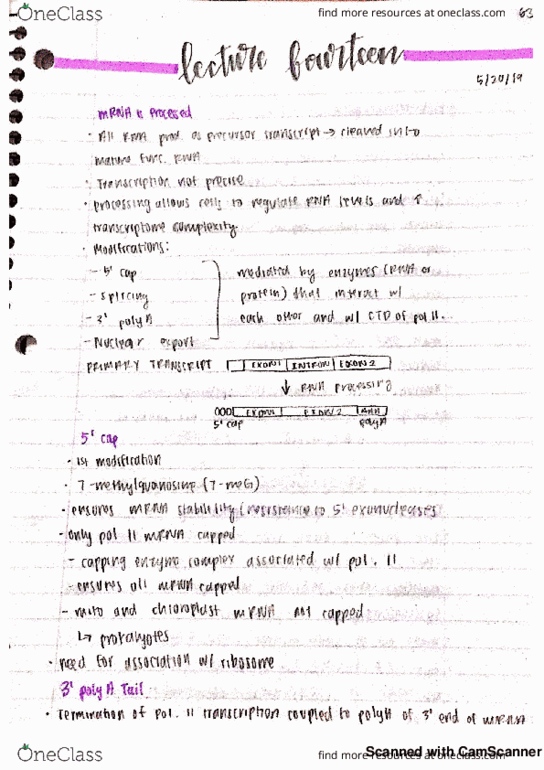 OneClass
find more resources at oneclass.com
63
lecture fourteen
5/20/19
mRNA is Processed
· All RNA prod. as precursor transcript → cleaved into
mature func. RNA
· Transcription not precise
· processing allows cells to regulate RNA levels and ↑
transcriptome complexity
· Modifications:
- 5' cap
- splicing
- 3' poly A
- Nuclear export
mediated by enzymes (RNA or
protein) that interact w/
each other and w/ CTD of pol II.
PRIMARY TRANSCRIPT
EXON1 INTRON EXON 2
↓ RNA processing
EXON1 EXON 2 AAA
5' cap
polyA
5' cap
· 1st modification
· 7-methylguanosine (7-meG)
· ensures mRNA stability (resistence to 5' exonucleases
· only pol II mRNA capped
- capping enzyme complex associated w/ pol. II
- ensures all mRNA capped
- mito and chloroplast mRNA not capped
↳ prokaryotes
· need for association w/ ribosome
3' poly A Tail
· Termination of pol. II transcription coupled to polyA of 3' end of mRNA
OneClass
find more resources at oneclass.com
Scanned with CamScanner